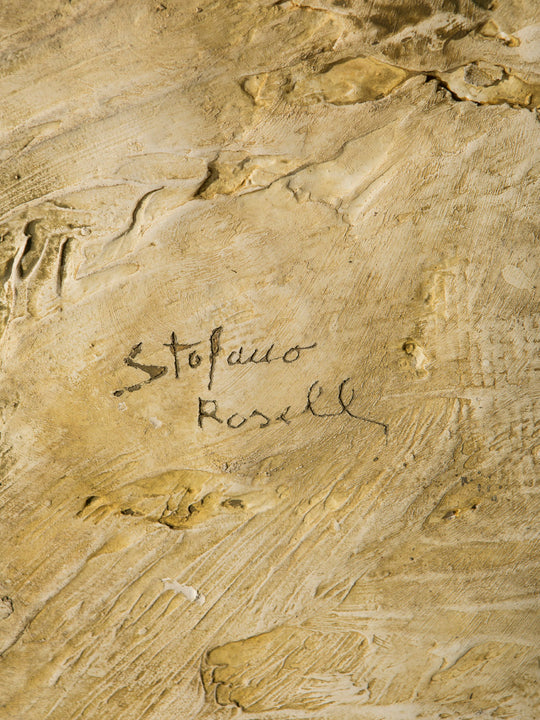 Stefano
Rosell